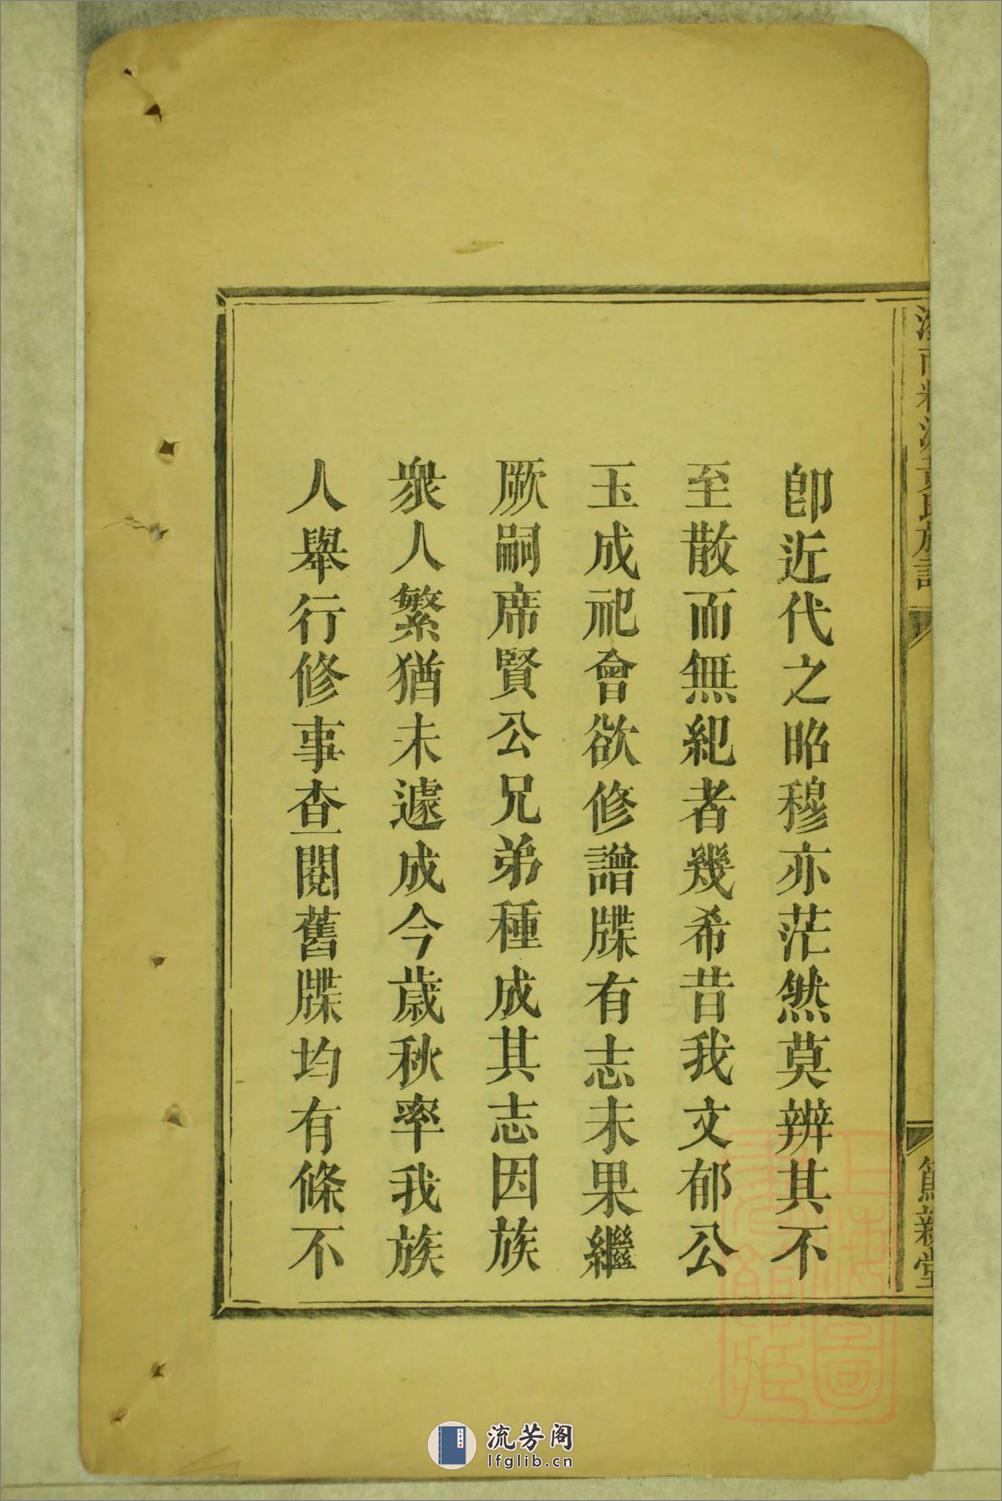 卽近代之昭穆亦茫然莫辨其不
至散而無紀者幾希昔我文郁公
玉成祀會欲修譜牒有志未果繼
厥嗣席賢公兄弟種成其志因族
衆人繁猶未遽成今歲秋率我族
人舉行修事查閱舊牒均有條不
親堂
上海圖書館藏
流芳阁
lfglib.cn